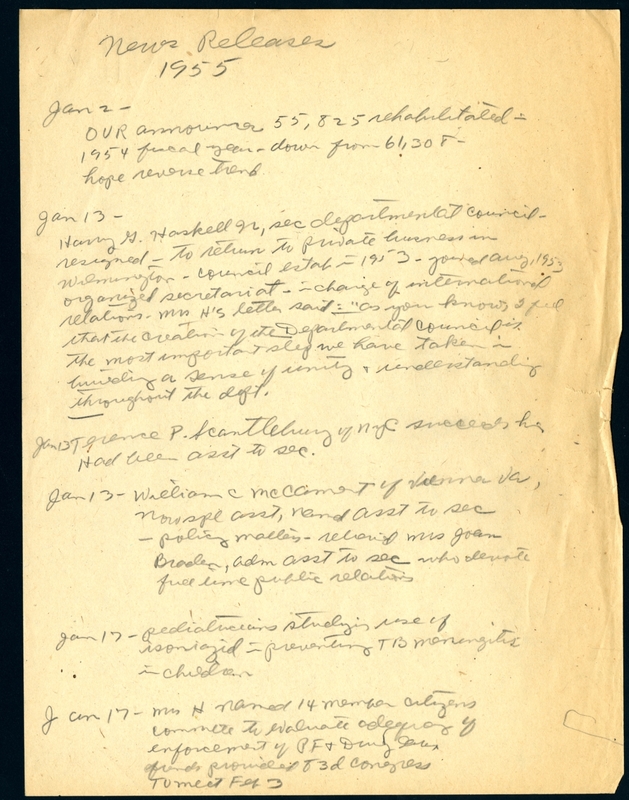 News Releases
1955
Jan 2 -
OVR announces 55,825 rehabilitated in
1954 fiscal year - down from 61,308 -
hope reverse trend
Jan 13 -
Harry G. Haskell Jr, sec departmental council -
resigned - to return to private business in
Wilmington - council estab in 1953 - joined aug, 1953
organized secretariat - in charge of international
relations. Mrs H's letter said: "as you know, I feel
that the creation of the Departmental Council is
the most important step we have taken in
building a sense of unity & understanding
throughout the dept.
Jan 13 Terence P. Scantlebury of NYC succeeds he
Had been asst to sec.
Jan 13 - William C McCamert of Vienna Va,
Now spl asst, named asst to sec
- policy matters - relieved Mrs Joan
Braden, adm asst to sec who devote
full time public relations
Jan 17 - pediatricians studying use of
isoniazid in preventing TB meningitis
in children
Jan 17 - Mrs H named 14 member citizens
committe to evaluate adequacy of
enforcement of PF & Drug laws
funds provided 83d Congress
To meet Feb 3